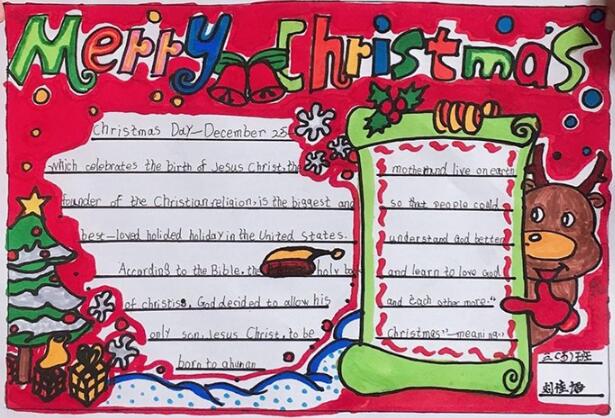 Merry Christmas
Christmas Day—December 25
which celebrates the birth of Jesus Christ, the
founder of the Christian religion, is the biggest and
best-loved holided holiday in the United States.
According to the Bible, the holy bo
of christiss, God decided to allow his
only son, Jesus Christ, to be
born to ahuman
mother and live on earth
so that people could
understand God better
and learn to love God
and each other more."
Christmas"—meaning
班
刘佳